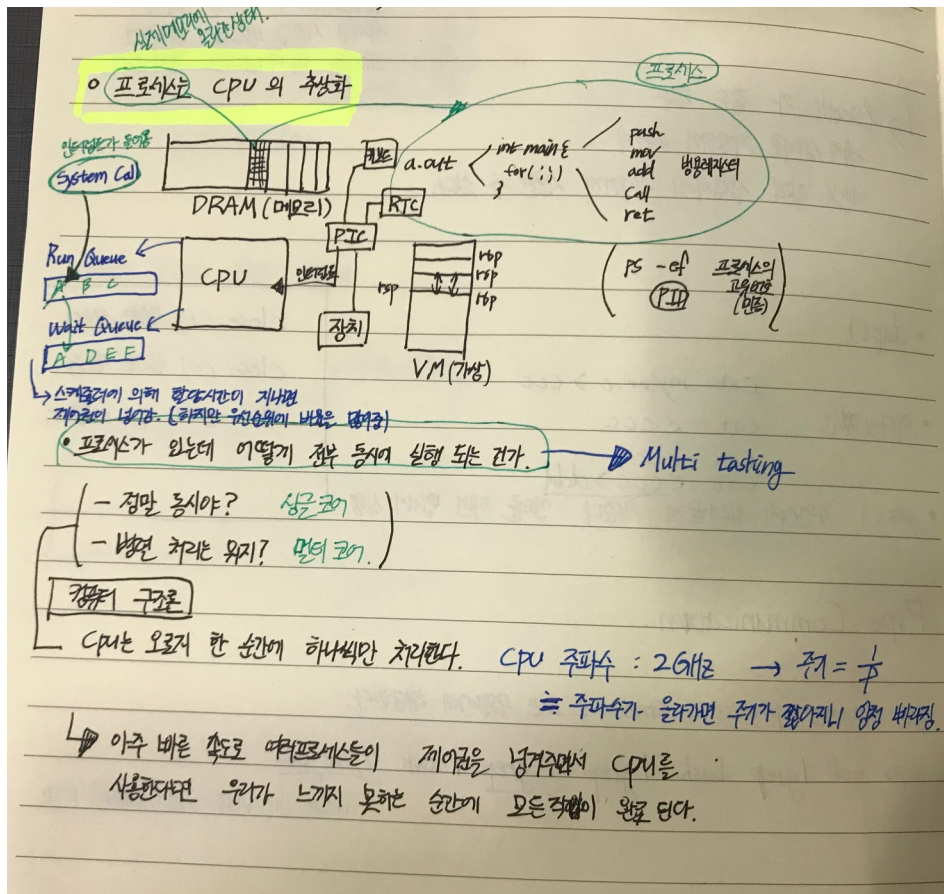 실제메모리에
올라간상태.
프로세스는 CPU의 추상화
프로세스
인터럽트가 들어옴
System Call
DRAM(메모리)
키보드
RTC
PIC
a.out
int main {
for(;;)
}
push
mov
add
call
ret
범용레지스터
Run Queue
A B C
Wait Queue
A D E F
CPU
인터럽트
장치
rsp
rbp
rsp
rbp
VM(가상)
(PS -ef 프로세스의
PID 고유번호
(민증))
스케줄러에 의해 할당시간이 지나면
제어권이 넘어감. (하지만 우선순위에 비중을
프로세스가 있는데 어떻게 전부 동시에 실행 되는 건가.
Multi tasking
- 정말 동시야? 싱글코어
- 병렬 처리는 뭐지? 멀티코어.
컴퓨터 구조론
CPU는 오로지 한 순간에 하나씩만 처리한다.
CPU 주파수 : 2GHz → 주기 = 1/F
≒ 주파수가 올라가면 주기가 짧아지니 엄청 빨라짐.
아주 빠른 속도로 여러프로세스들이 제어권을 넘겨주면서 CPU를
사용한다면 우리가 느끼지 못하는 순간에 모든작업이 완료 된다.